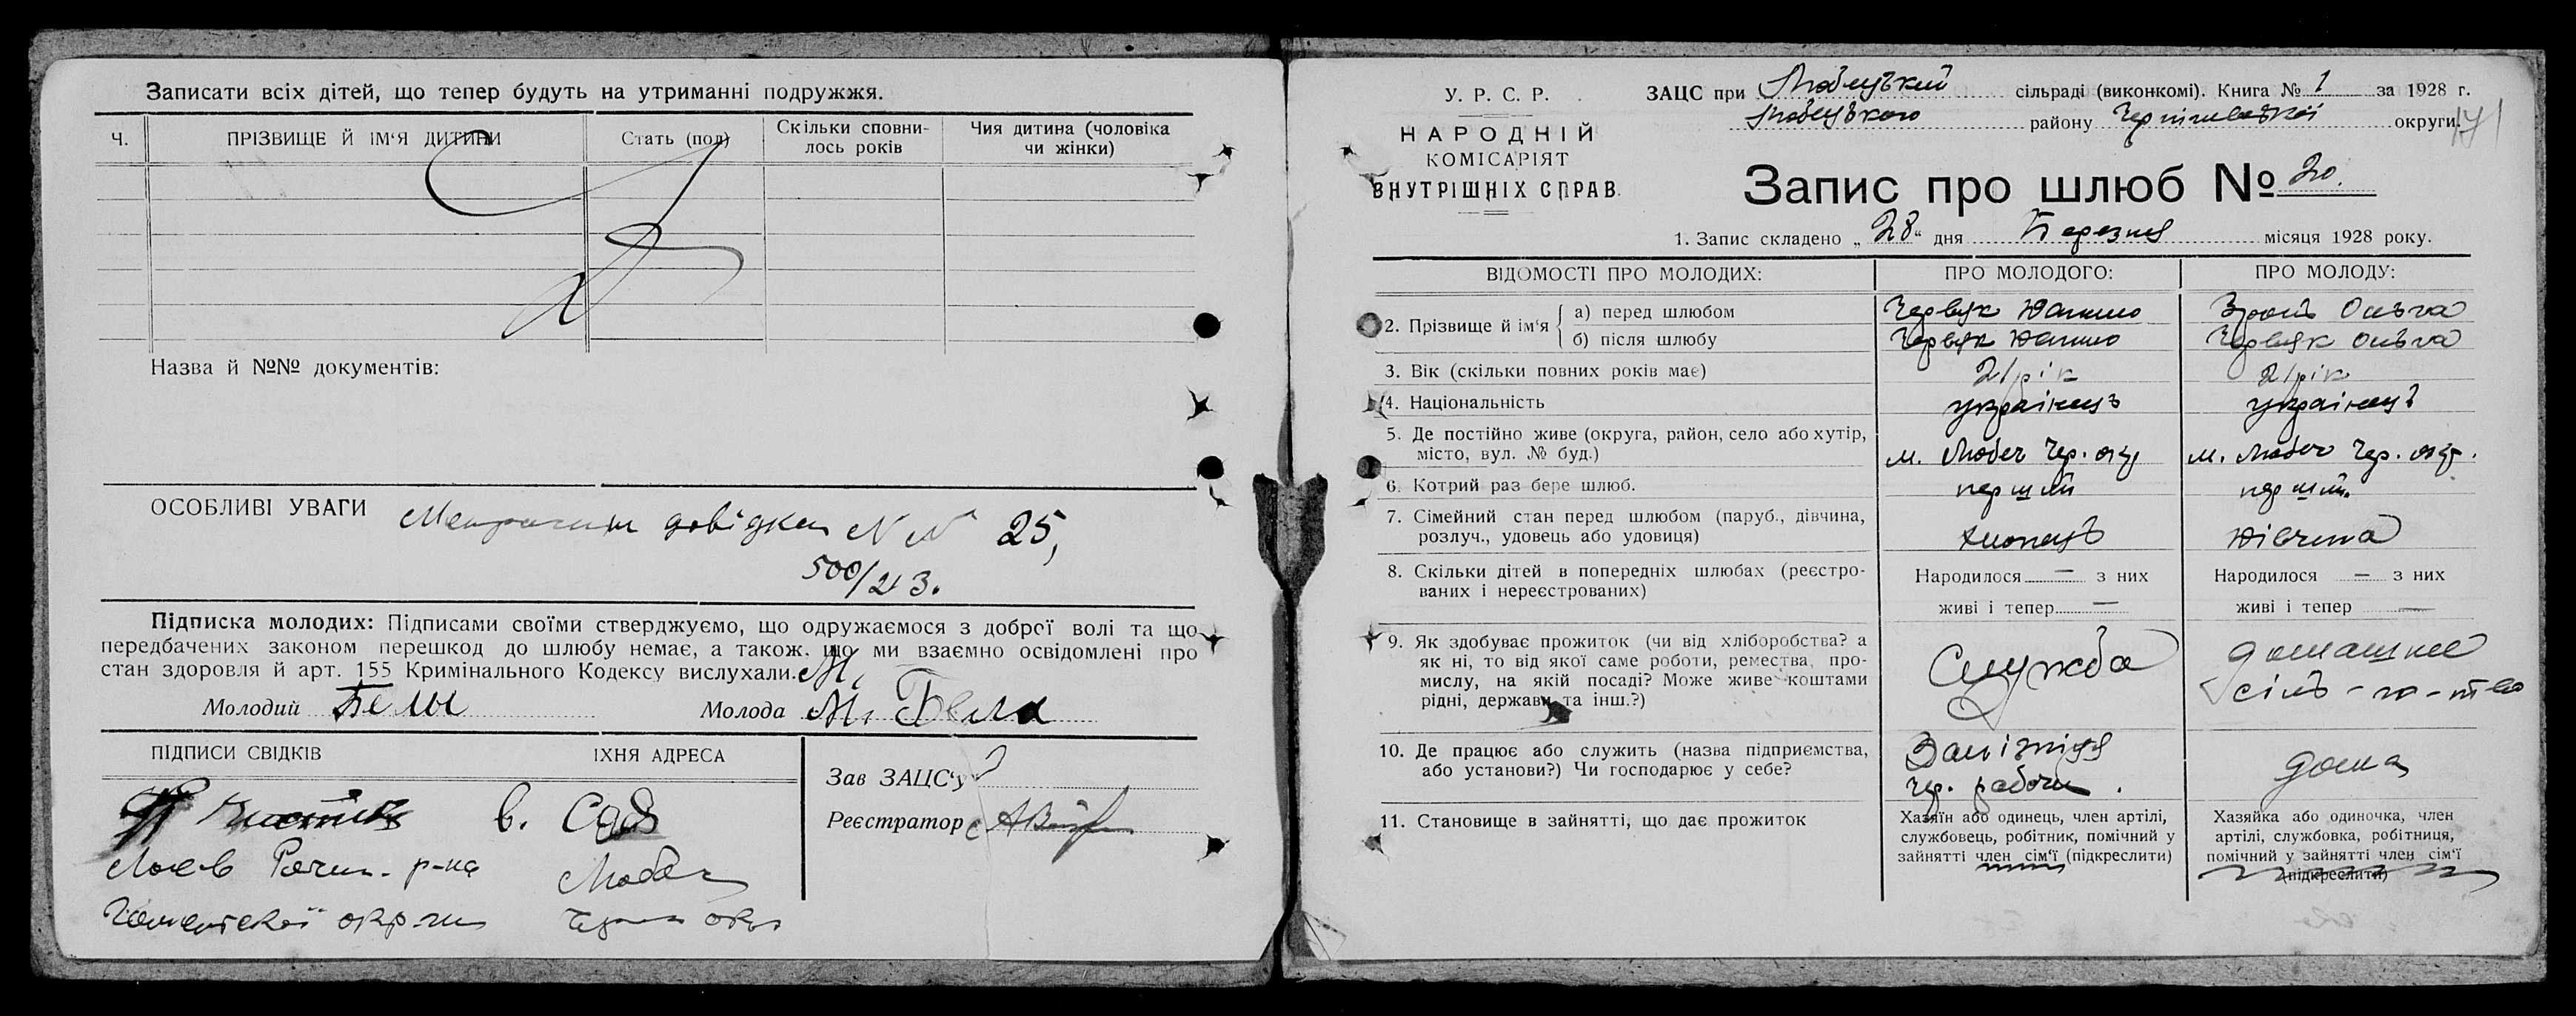 Записати всіх дітей, що тепер будуть на утриманні подружжя.
Ч. ПРІЗВИЩЕ Й ІМ'Я ДИТИНИ Стать (пол) Скільки сповни-лось років Чия дитина (чоловіка чи жінки)
Назва й №№ документів:
ОСОБЛИВІ УВАГИ довідки N N 25,
500/243.
Підписка молодих: Підписами своїми стверджуємо, що одружаємося з доброї волі та що
передбачених законом перешкод до шлюбу немає, а також, що ми взаємно освідомлені про
стан здоров'я й арт. 155 Кримінального Кодексу вислухали.
Молодий Белы Молода М. Бела
ПІДПИСИ СВІДКІВ ЇХНЯ АДРЕСА
Зав ЗАЦС'у
Реєстратор
в.
Лоев р-на
окр.
У. Р. С. Р.
НАРОДНІЙ
КОМІСАРІЯТ
ВНУТРІШНІХ СПРАВ.
ЗАЦС при Любецький сільраді (виконкомі). Книга № 1 за 1928 г.
Любецького району Чернігівської округи.
Запис про шлюб № 20.
1. Запис складено „28" дня Березня місяця 1928 року.
ВІДОМОСТІ ПРО МОЛОДИХ: ПРО МОЛОДОГО: ПРО МОЛОДУ:
2. Прізвище й ім'я
а) перед шлюбом Червяк Ольга
б) після шлюбу Червяк Червяк Ольга
3. Вік (скільки повних років має) 21 рік 21 рік
4. Національність українець українець
5. Де постійно живе (округа, район, село або хутір, місто, вул. № буд.) м. Любеч Чер. окр м. Любеч Чер. окр.
6. Котрий раз бере шлюб. перший перший
7. Сімейний стан перед шлюбом (паруб., дівчина, розлуч., удовець або удовиця) хлопець дівчина
8. Скільки дітей в попередніх шлюбах (реєстро-ваних і нереєстрованих) Народилося — з них живі і тепер — Народилося — з них живі і тепер —
9. Як здобуває прожиток (чи від хліборобства? а як ні, то від якої саме роботи, ремества, про-мислу, на якій посаді? Може живе коштами рідні, держави та інш.?) Служба домашнє сіль-го-тво
10. Де працює або служить (назва підприємства, або установи?) Чи господарює у себе? Залізниця чер. рабочи. дома
11. Становище в зайнятті, що дає прожиток
Хазяїн або одинець, член артілі, службовець, робітник, помічний у зайнятті член сім'ї (підкреслити)
Хазяйка або одиночка, член артілі, службовка, робітниця, помічний у зайнятті член сім'ї (підкреслити)